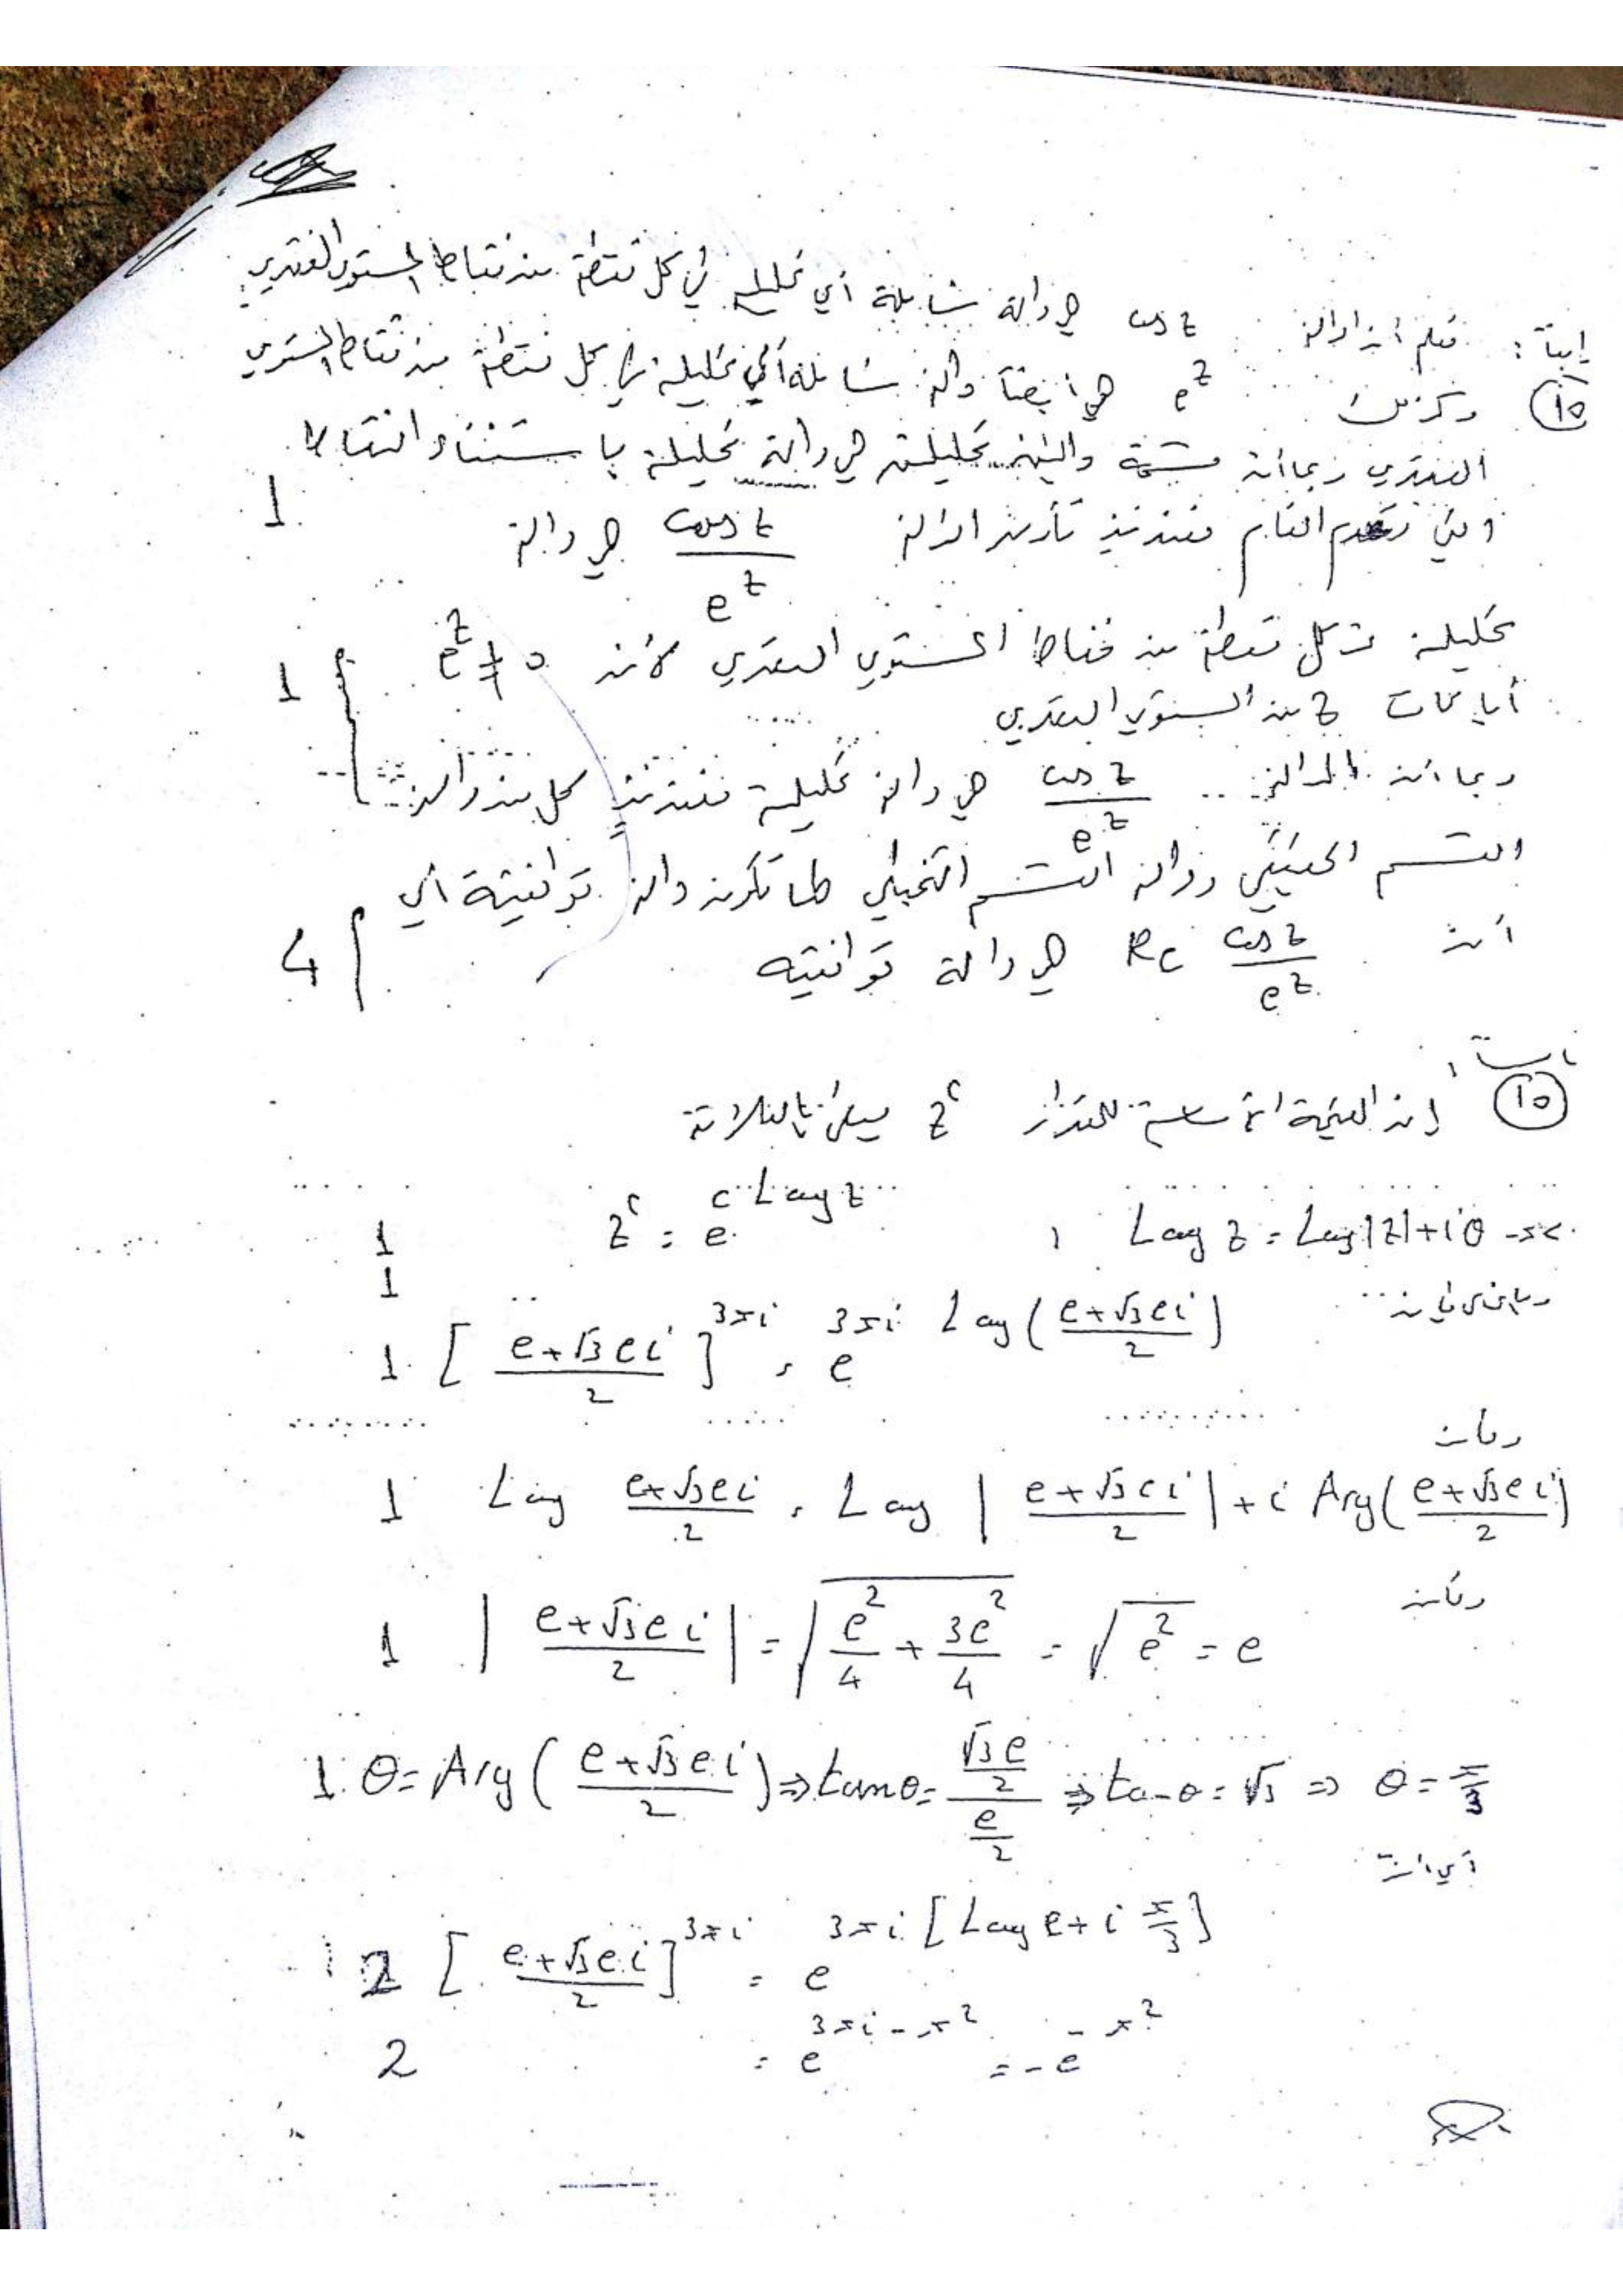 نعلم أن الدالة cos z هي دالة شاملة أي تحليلية في كل نقطة من نقاط المستوي العقدي
10 وكذلك e^z هي أيضاً دالة شاملة أي تحليلية في كل نقطة من نقاط المستوي
العقدي وبما أن قسمة دالتين تحليليتين هي دالة تحليلية باستثناء النقاط
1 التي تعدم المقام فعندئذ تكون الدالة cos z / e^z هي دالة
1 تحليلية في كل نقطة من نقاط المستوي العقدي لأن e^z ≠ 0
أياً كانت z من المستوي العقدي
وبما أن الدالة cos z / e^z هي دالة تحليلية فعندئذ كل من دالة
القسم الحقيقي ودالة القسم التخيلي لها تكون دالة توافقية أي
4 أن Re cos z / e^z هي دالة توافقية
10 إن القيمة الأساسية للمقدار z^c
1 z^c = e^{c Log z} , Log z = Log|z| + iθ -π<
1
1 [ (e+√3 e i)/2 ]^{3πi} = e^{3πi Log( (e+√3 e i)/2 )}
وبأن
1 Log (e+√3 e i)/2 = Log | (e+√3 e i)/2 | + i Arg( (e+√3 e i)/2 )
وبأن
1 | (e+√3 e i)/2 | = √( e²/4 + 3e²/4 ) = √(e²) = e
1 θ = Arg( (e+√3 e i)/2 ) ⇒ tan θ = (√3 e/2)/(e/2) ⇒ tan θ = √3 ⇒ θ = π/3
أي أن
2 [ (e+√3 e i)/2 ]^{3πi} = e^{3πi [Log e + i π/3]}
2 = e^{3πi - π²} = -e^{-π²}